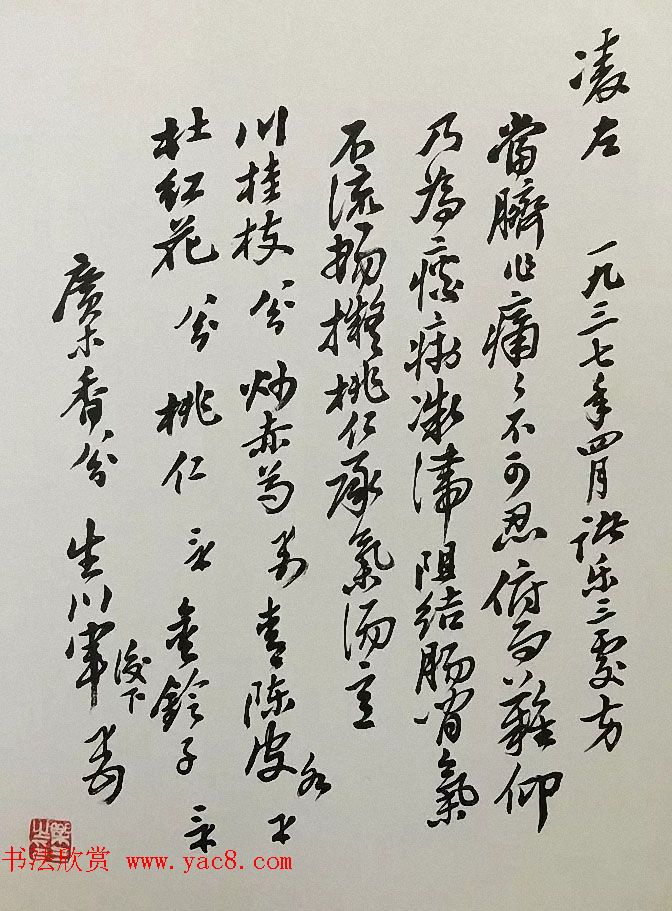 凌左 一九三七年四月 諸乐三處方
當臍作痛痛不可忍俯而難仰
乃為瘀凝滞阻结肠胃氣
不流畅擬桃仁承氣汤主
川桂枝 炒赤芍 青陈皮 各
杜红花 桃仁 金鈴子
廣木香 生川軍 後下
书法欣赏 www.yac8.com